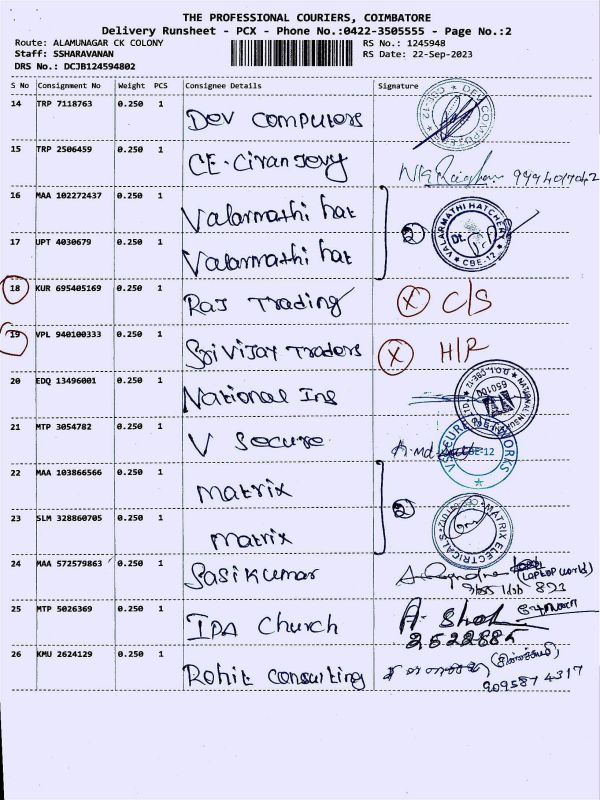 THE PROFESSIONAL COURIERS, COIMBATORE
Delivery Runsheet - PCX - Phone No.:0422-3505555 - Page No.:2
Route: ALAMUNAGAR CK COLONY RS No.: 1245948
Staff: SSHARAVANAN RS Date: 22-Sep-2023
DRS No.: DCJB124594802
S No Consignment No Weight PCS Consignee Details Signature
14 TRP 7118763 0.250 1 Dev Computers
15 TRP 2506459 0.250 1
16 MAA 102272437 0.250 1 Valarmathi hat
2 VALARMATHI HATCHERY Dt. CBE-12
17 UPT 4030679 0.250 1 Valarmathi hat
18 KUR 695405169 0.250 1 Raj Trading X C/S
19 VPL 940100333 0.250 1 Sri Vijay Traders X H/R
20 EDQ 13496001 0.250 1 National Ins
21 MTP 3054782 0.250 1 V Secure
22 MAA 103866566 0.250 1 Matrix
2 MATRIX ELECTRICALS
23 SLM 328860705 0.250 1 Matrix
24 MAA 572579863 1 0.250 1 Sasikumar (Laptop world)
25 MTP 5026369 0.250 1 IPA Church
26 KMU 2624129 0.250 1 Rohit Consulting
9095874317